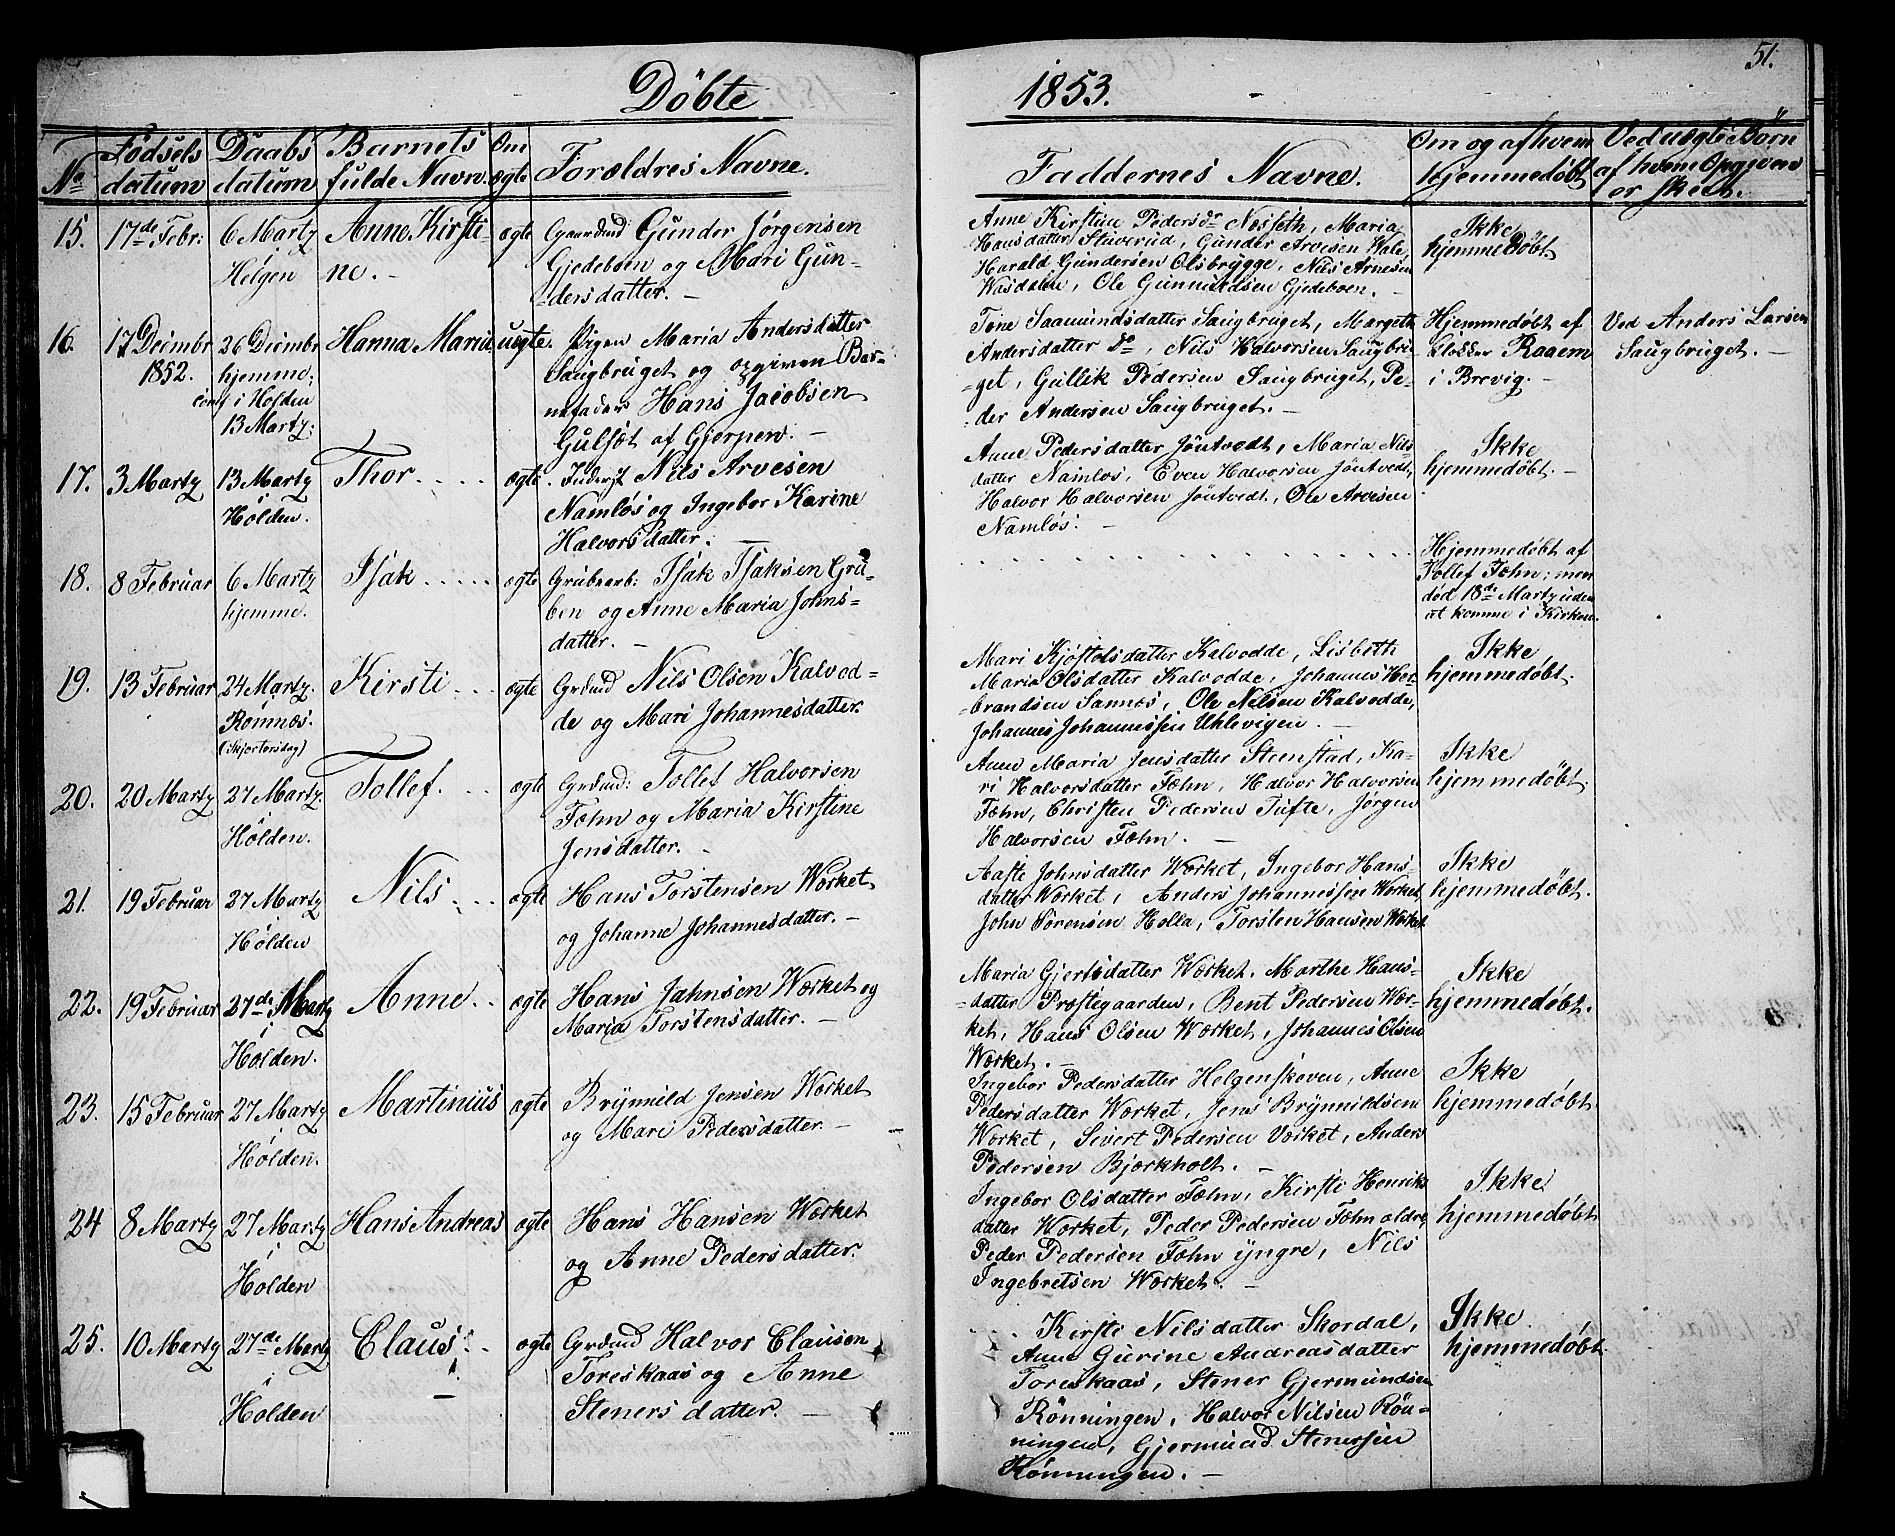 51.
Döbte
1853.
No
Födsels datum
Daabs datum
Barnets fulde Navn
Om ægte
Forældres Navne.
Faddernes Navne.
Om og af hvem hjemmedøbt
Ved uægte Börn af hvem Opgiven er skeet.
15.
17de Febr:
6 Marty
Helgen
Anne Kirsti-
ne. -
ægte
Gaardmd Gunder Jørgensen
Gjedeboen og Mari Gun-
dersdatter. -
Anne Kirstine Pedersdr Næsseth, Maria
Hansdatter Stuverud, Gunder Arvesen Vale,
Harald Gundersen Olsbrygge, Nils Arnesen
Wasdalen, Ole Gunnuldsen Gjedeboen. -
Ikke
hjemmedøbt
16.
17 Decimbr
1852.
26 Decimbr
hjemme;
conf i Holden
13 Marty:
Hanna Maria
uægte.
Pigen Maria Andersdatter
Saugbruget og opgiven Bar-
nefader Hans Jacobsen
Gulset af Gjerpen. -
Tone Saamundsdatter Saugbruget, Margethe
Andersdatter do, Nils Halvorsen Saugbru-
get, Gullik Pedersen Saugbruget, Pe-
der Andersen Saugbruget. -
Hjemmedøbt af
klokker Raaem
i Brevig. -
Ved Anders Larsen
Saugbruget. -
17.
3 Marty
13 Marty
i
Holden.
Thor
ægte
Inderst Nils Arvesen
Namløs og Ingebor Karine
Halvorsdatter. -
Anne Pedersdatter Jöntvedt, Maria Nils-
datter Namlos, Even Halvorsen Jöntvedt,
Halvor Halvorsen Jöntvedt, Ole Arvesen
Namlös. -
Ikke
hjemmedøbt. -
18.
8 Februar
6 Marty
hjemme.
Isak
ægte
Grubearb: Isak Isaksen Gru-
ben og Anne Maria Johns-
datter. -
Hjemmedøbt af
Tollef Fæhn; men
død 18de Marty uden
at komme i Kirken.
19.
13 Februar
24 Marty.
i
Romnæs.
(Skjertorsdag)
Kirsti
ægte
Grdmd Nils Olsen Kalvod-
de og Mari Johannesdatter.
Mari Kjøstolsdatter Kalvodde, Lisbeth
Maria Olsdatter Kalvodde, Johannes Her-
brandsen Sannæs, Ole Nilsen Kalvodde,
Johannes Johannessen Uhlevigen. -
Ikke
hjemmedøbt.
20.
20 Marty
27 Marty.
i
Hölden.
Tollef.
ægte
Grdmd: Tollef Halvorsen
Fæhn og Maria Kirstine
Jensdatter. -
Anne Maria Jensdatter Steenstad, Ka-
ri Halvorsdatter Fæhn, Halvor Halvorsen
Fæhn, Christen Pedersen Tufte, Jörgen
Halvorsen Fæhn. -
Ikke
hjemmedøbt.
21.
19 Februar
27 Marty
i
Holden
Nils
ægte
Hans Torstensen Wærket
og Johanne Johannesdatter. -
Aaste Johnsdatter Wærket, Ingebor Hans-
datter Wærket, Anders Johannessen Wærket,
John Sörensen Holla, Torsten Hansen Wærket
Ikke
hjemmedøbt.
22.
19 Februar
27de Marty
i
Holden.
Anne
ægte
Hans Jahnsen Wærket og
Maria Torstensdatter. -
Maria Gjertsdatter Wærket, Marthe Hans-
datter Præstegaarden, Bent Pedersen Wær-
ket, Hans Olsen Wærket, Johannes Olsen
Wærket. -
Ikke
hjemmedøbt.
23.
15 Februar
27 Marty
i
Holden.
Martinius
ægte
Brynnild Jensen Wærket
og Mari Pedersdatter. -
Ingebor Pedersdatter Helgenskoven, Anne
Pedersdatter Wærket, Jens Brynnildsen
Wærket, Sivert Pedersen Værket, Anders
Pedersen Bjærkholt. -
Ikke
hjemmedøbt.
24
8 Marty
27 Marty
i
Holden
Hans Andreas
ægte
Hans Hansen Wærket
og Anne Pedersdatter.
Ingebor Olsdatter Fæhn, Kirsti Henriks
datter Wærket, Peder Pedersen Fæhn ældre,
Peder Pedersen Fæhn yngre, Nils
Ingebretsen Wærket. -
Ikke
hjemmedøbt
25.
10 Marty
27de Marty
i
Holden
Claus
ægte
Grdmd Halvor Clausen
Foreskaas og Anne
Stenersdatter. -
Kirsti Nilsdatter Skordal,
Anne Gurine Andreasdatter
Foreskaas, Stener Gjermundsen
Rönningen, Halvor Nilsen Rön-
ningen, Gjermund Stenersen
Rönningen. -
Ikke
hjemmedøbt